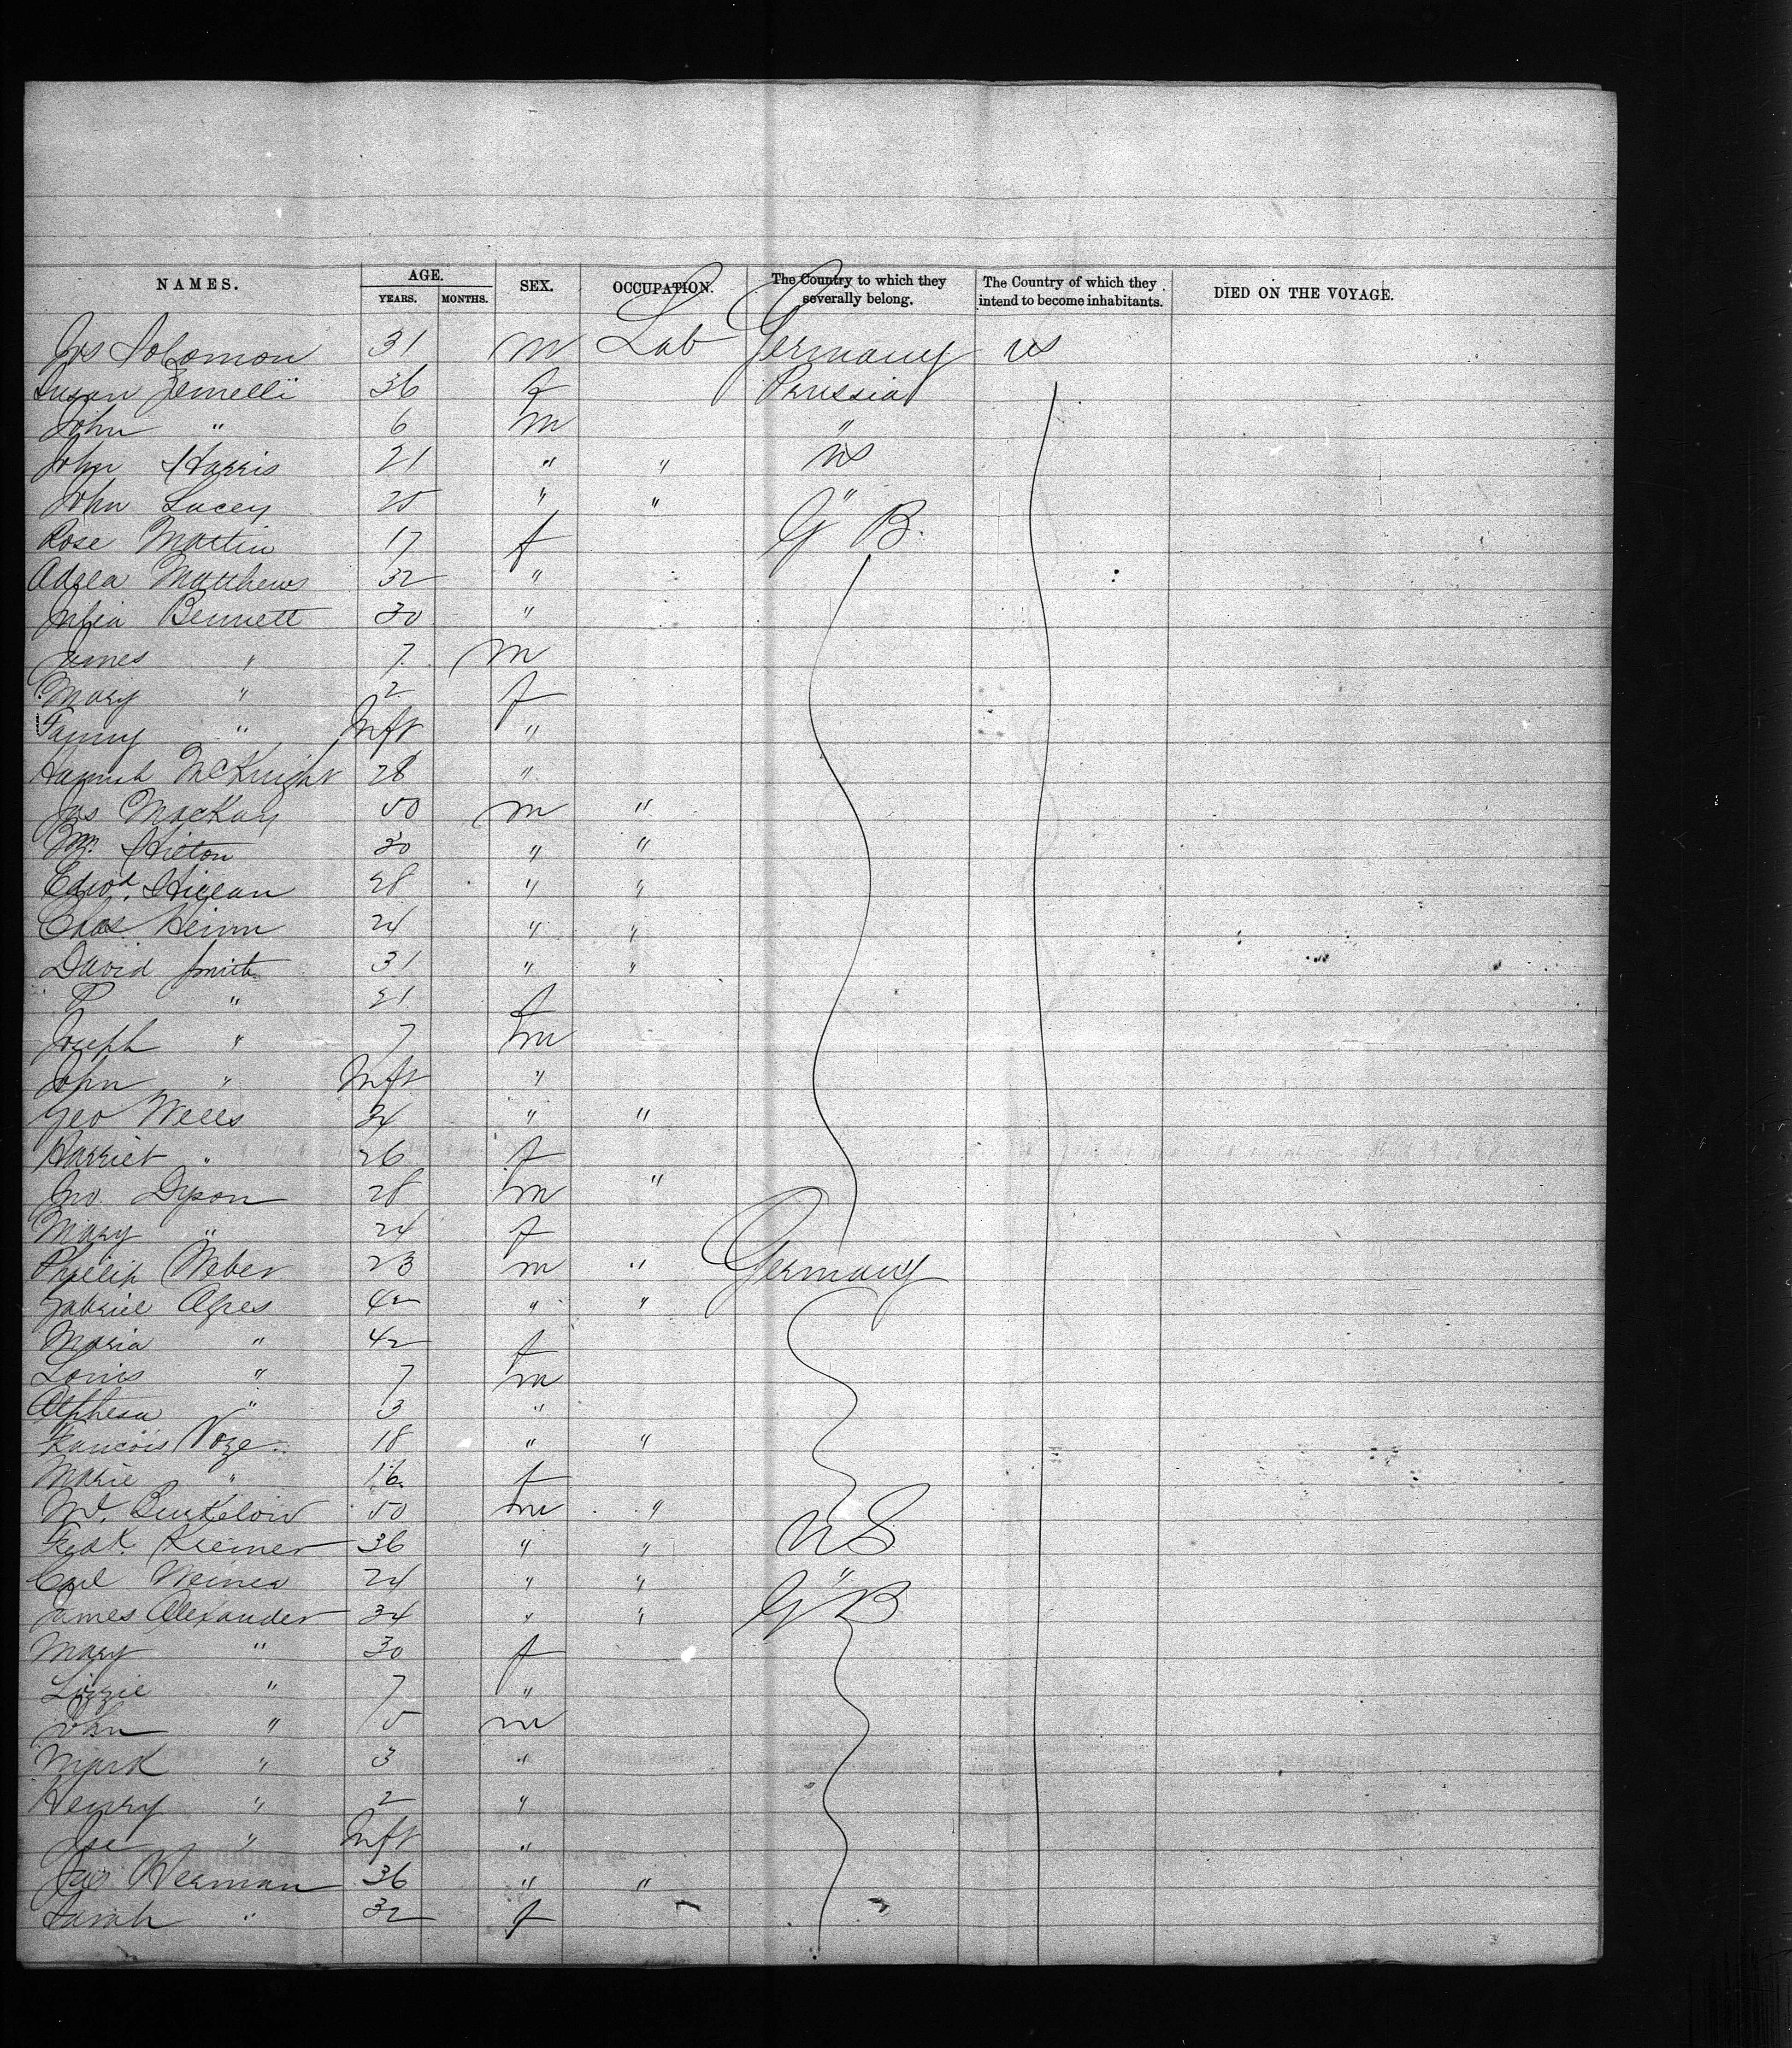 NAMES. AGE. SEX. OCCUPATION. The Country to which they severally belong. The Country of which they intend to become inhabitants. DIED ON THE VOYAGE.
YEARS. MONTHS.
Jos Solomon 31 m Lab Germany US
Susan Zemelli 36 f Prussia
John " 6 m "
John Harris 21 " " US
John Lacey 25 " " "
Rose Martin 17 f G B.
Adzea Matthews 32 "
Julia Bennett 30 "
James " 7 m
Mary " 2 f
Fanny " Inft "
Hannah McKnight 28 "
Jas MacKay 50 m "
Wm Hilton 30 " "
Edwd. 28 " "
Chas 24 " "
David Smith 31 " "
P " 21 f
Joseph " 7 m
John " Inft "
Geo Wells 34 " "
Harriet " 26 f
Jno. Dyson 28 m "
Mary " 24 f
Phillip Weber 23 m " Germany
Gabriel Agres 42 " "
Maria " 42 f
Louis " 7 m
" 3 "
Francois Noze 18 " "
Marie " 16 f
50 m " US
Fredk. Kremer 36 " "
Carl 24 " " "
James Alexander 34 " " G B
Mary " 30 f
Lizzie " 7 "
John " 5 m
Mark " 3 "
Henry " 2 "
Joe " Inft "
Jas Herman 36 " "
Sarah " 32 f